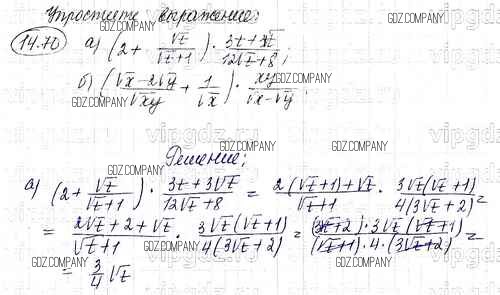 Упростите выражение:
14.70 а) (2 + √t/(√t+1)) · (3t+3√t)/(12√t+8);
б) ((√x-2√y)/√xy + 1/√x) · xy/(√x-√y);
Решение;
а) (2 + √t/(√t+1)) · (3t+3√t)/(12√t+8) = (2(√t+1)+√t)/(√t+1) · 3√t(√t+1)/(4(3√t+2)) =
= (2√t+2+√t)/(√t+1) · 3√t(√t+1)/(4(3√t+2)) = (3√t+2)·3√t(√t+1)/((√t+1)·4·(3√t+2)) =
= 3/4 √t
GDZ.COMPANY
vipgdz.ru